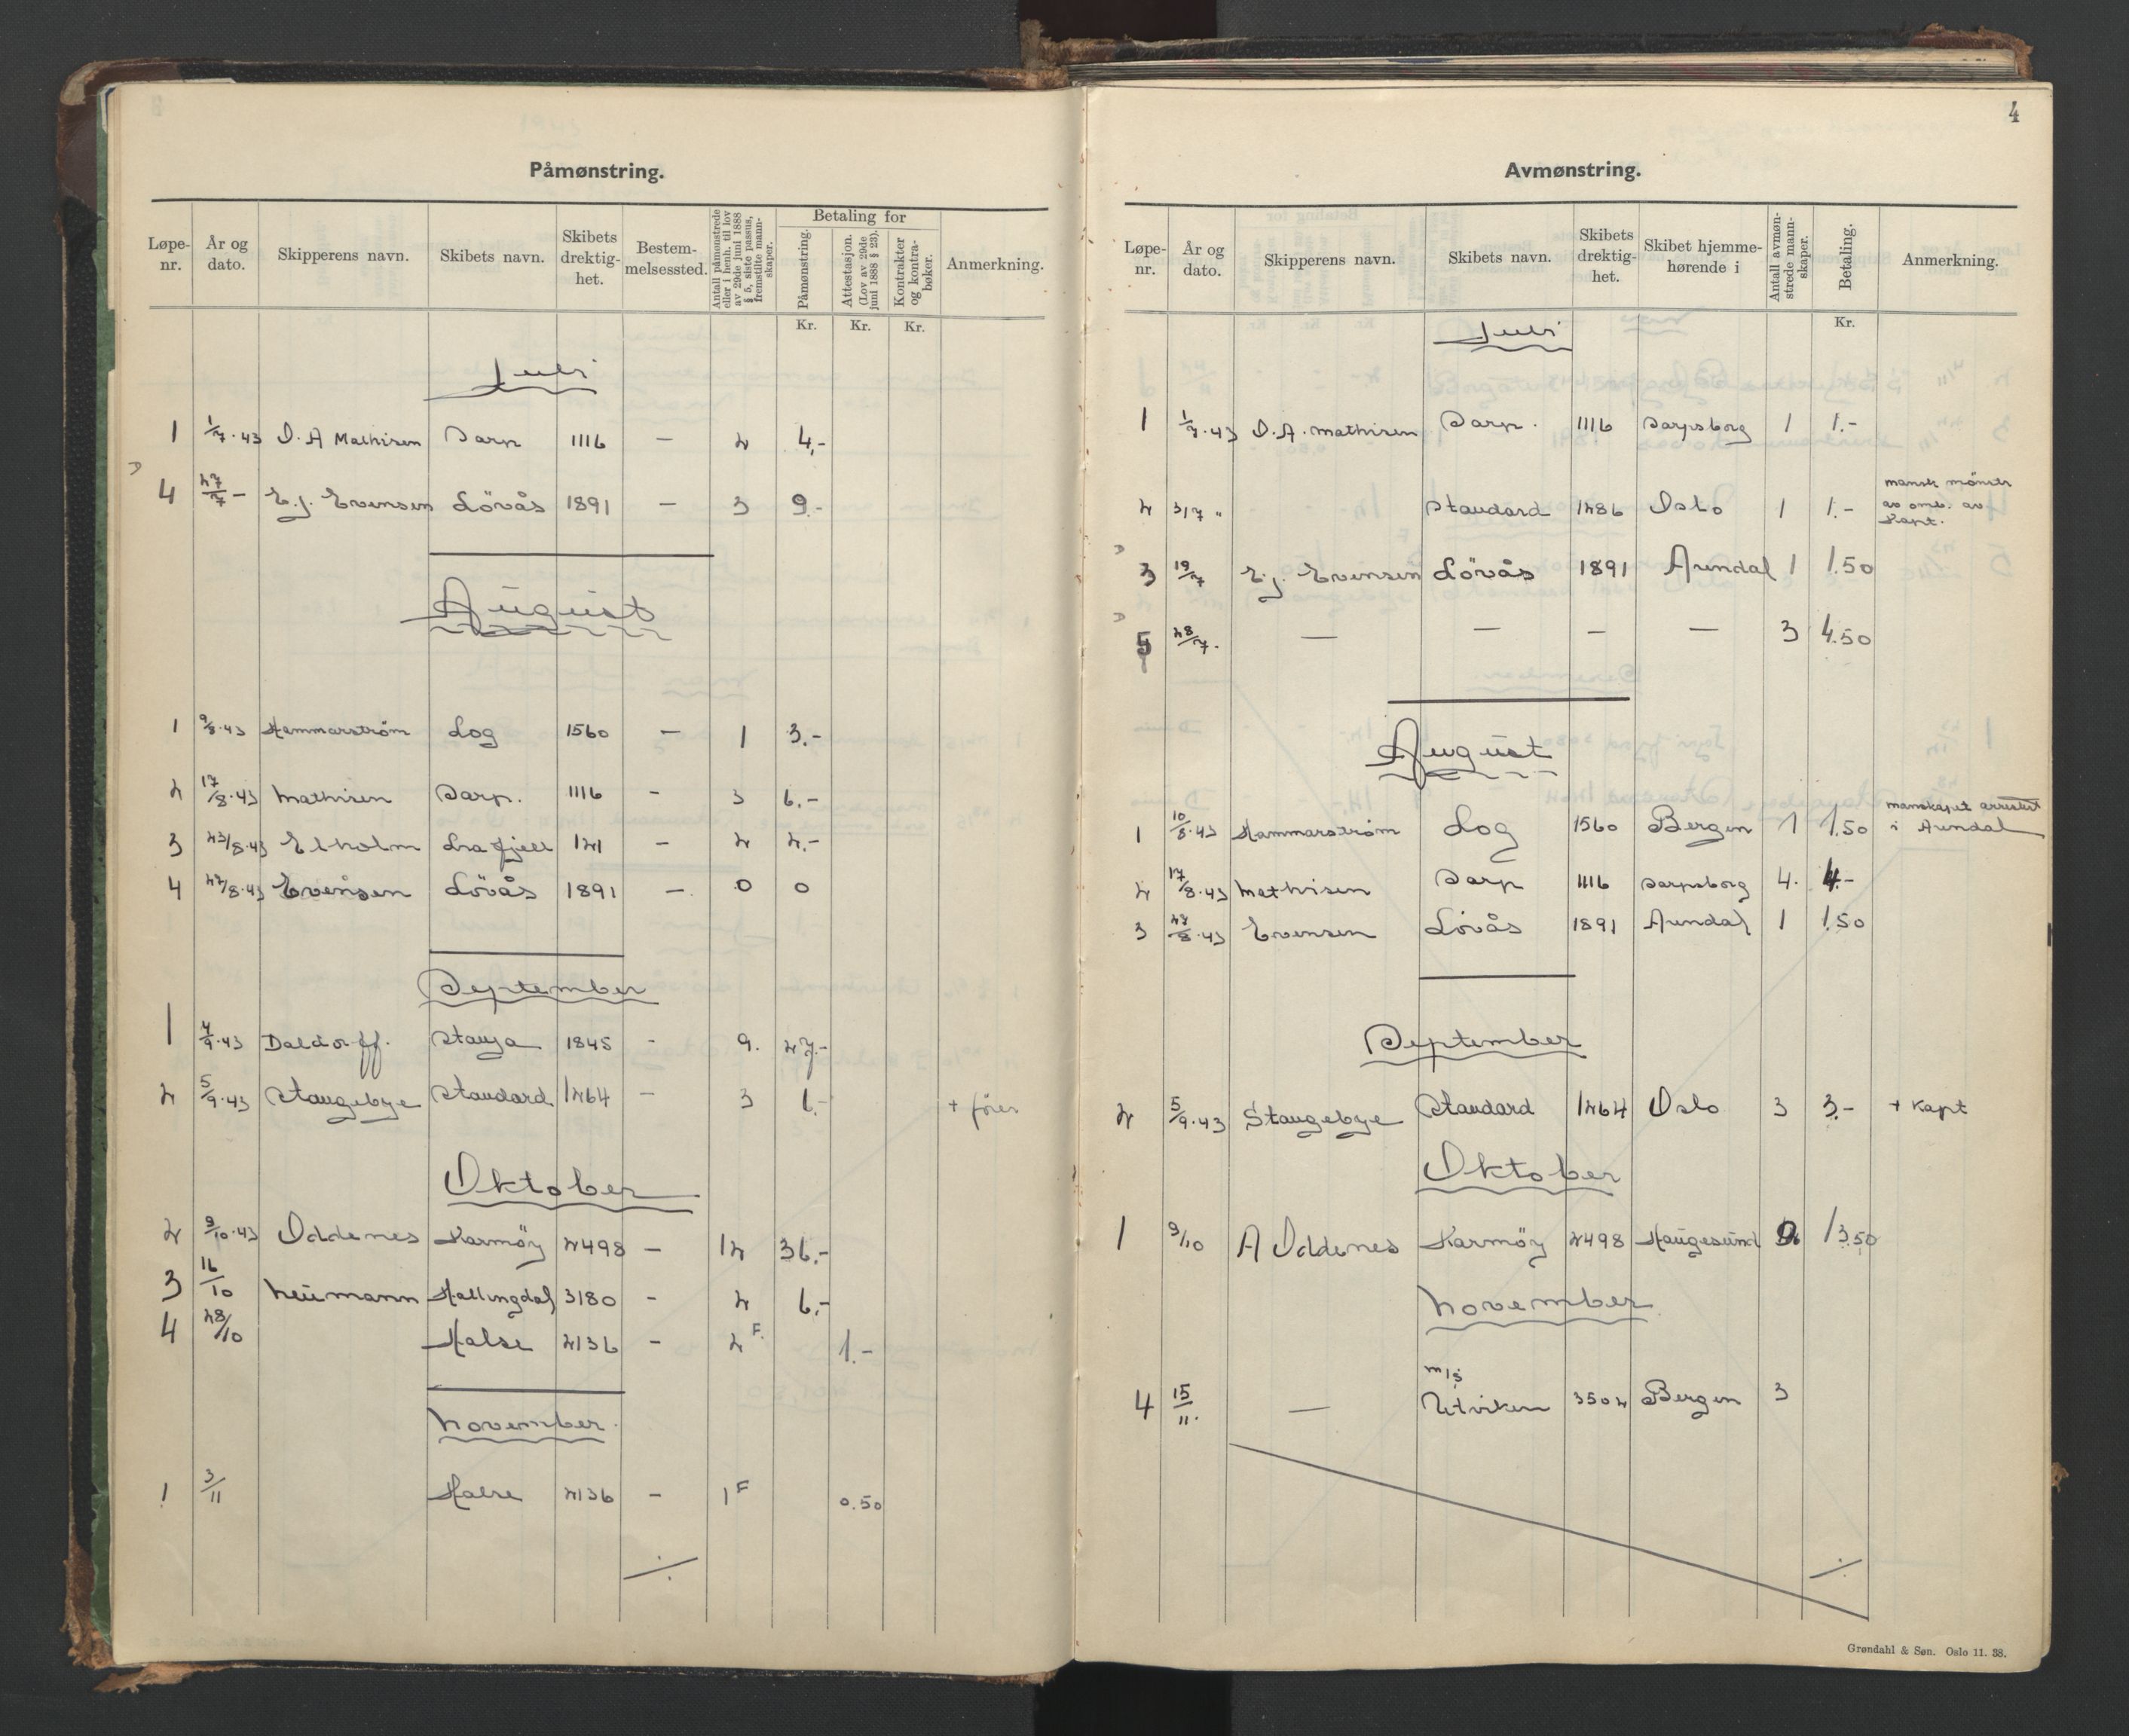 4
Påmønstring.
Løpe-nr. | År og dato. | Skipperens navn. | Skibets navn. | Skibets drektig-het. | Bestem-melsessted. | Antall påmønstrede eller i henh. til lov av 29de juni 1888 § 5, siste passus, fremstilte mann-skaper. | Betaling for | Påmønstring. | Attestasjon. (Lov av 29de juni 1888 § 23). | Kontrakter og kontra-bøker. | Anmerkning.
Kr. Kr. Kr.
Juli
1 1/7.43 D. A Mathisen Sarp 1116 — 2 4,-
4 27/7 - E. J. Evensen Lövås 1891 — 3 9.-
August
1 9/8.43 Hammarström Log 1560 — 1 3.-
2 17/8.43 Mathisen Sarp. 1116 - 3 6.-
3 23/8.43 Ekholm Lra fjell 121 - 2 2.-
4 27/8.43 Evensen Lövås 1891 - 0 0
September
1 4/9.43 Daldorff. Stanja 1845 - 9. 27.-
2 5/9.43 Staugebye Standard 1264 - 3 6.- + förer
Oktober
2 9/10.43 Oddenes Karmöy 2498 - 12 36.-
3 16/10 Neumann Hallingdal 3180 - 2 6,-
4 28/10 Halse 2136 - 2 F. 1.-
November.
1 3/11 Halse 2136 - 1 F 0.50
Avmønstring.
Løpe-nr. | År og dato. | Skipperens navn. | Skibets navn. | Skibets drektig-het. | Skibet hjemme-hørende i | Antall avmøn-strede mann-skaper. | Betaling. | Anmerkning.
Kr.
Juli
1 1/7.43 D. A. Mathisen Sarp. 1116 Sarpsborg 1 1.-
2 3/7 " Standard 1286 Oslo 1 1.- mansk mönstr av omb. av Kapt.
3 19/7 E. J. Evensen Lövås 1891 Arendal 1 1.50
5 28/7. — — — — 3 4.50
August
1 10/8.43 Hammarström Log 1560 Bergen 1 1.50 manskapet arrestert i Arendal
2 17/8.43 Mathisen Sarp 1116 Sarpsborg 4. 4.-
3 27/8.43 Evensen Lövås 1891 Arendal 1 1.50
September
2 5/9.43 Staugebye Standard 1264 Oslo 3 3.- + Kapt
Oktober
1 9/10 A Oddenes Karmöy 2498 Haugesund 9 13.50
November
4 15/11. — m/s Utviken 3502 Bergen 3
Grøndahl & Søn. Oslo 11. 38.